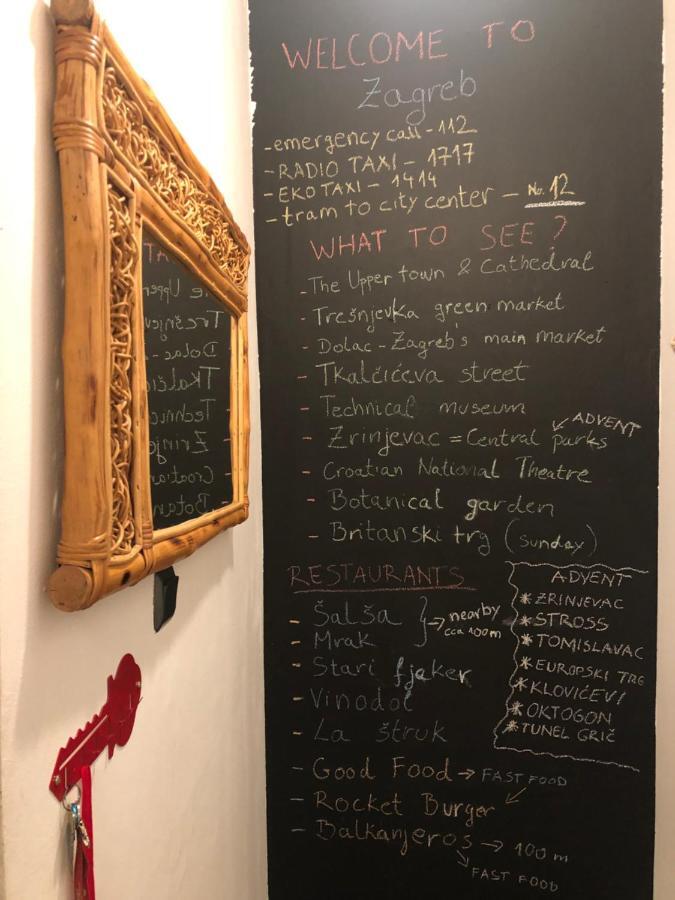 WELCOME TO
Zagreb
-emergency call - 112
- RADIO TAXI - 1717
- EKO TAXI - 1414
- tram to city center - No. 12
WHAT TO SEE?
- The Upper town & Cathedral
- Trešnjevka green market
- Dolac - Zagreb's main market
- Tkalčićeva street
- Technical museum
- Zrinjevac = Central parks
↙ ADVENT
- Croatian National Theatre
- Botanical garden
- Britanski trg (sunday)
RESTAURANTS
- Šalša
- Mrak
} → nearby
cca 100m
- Stari fjaker
- Vinodol
- La štruk
- Good Food → FAST FOOD
- Rocket Burger ↙
- Balkanjeros → 100 m
↘ FAST FOOD
ADVENT
* ZRINJEVAC
* STROSS
* TOMISLAVAC
* EUROPSKI TRG
* KLOVIĆEVI
* OKTOGON
* TUNEL GRIČ